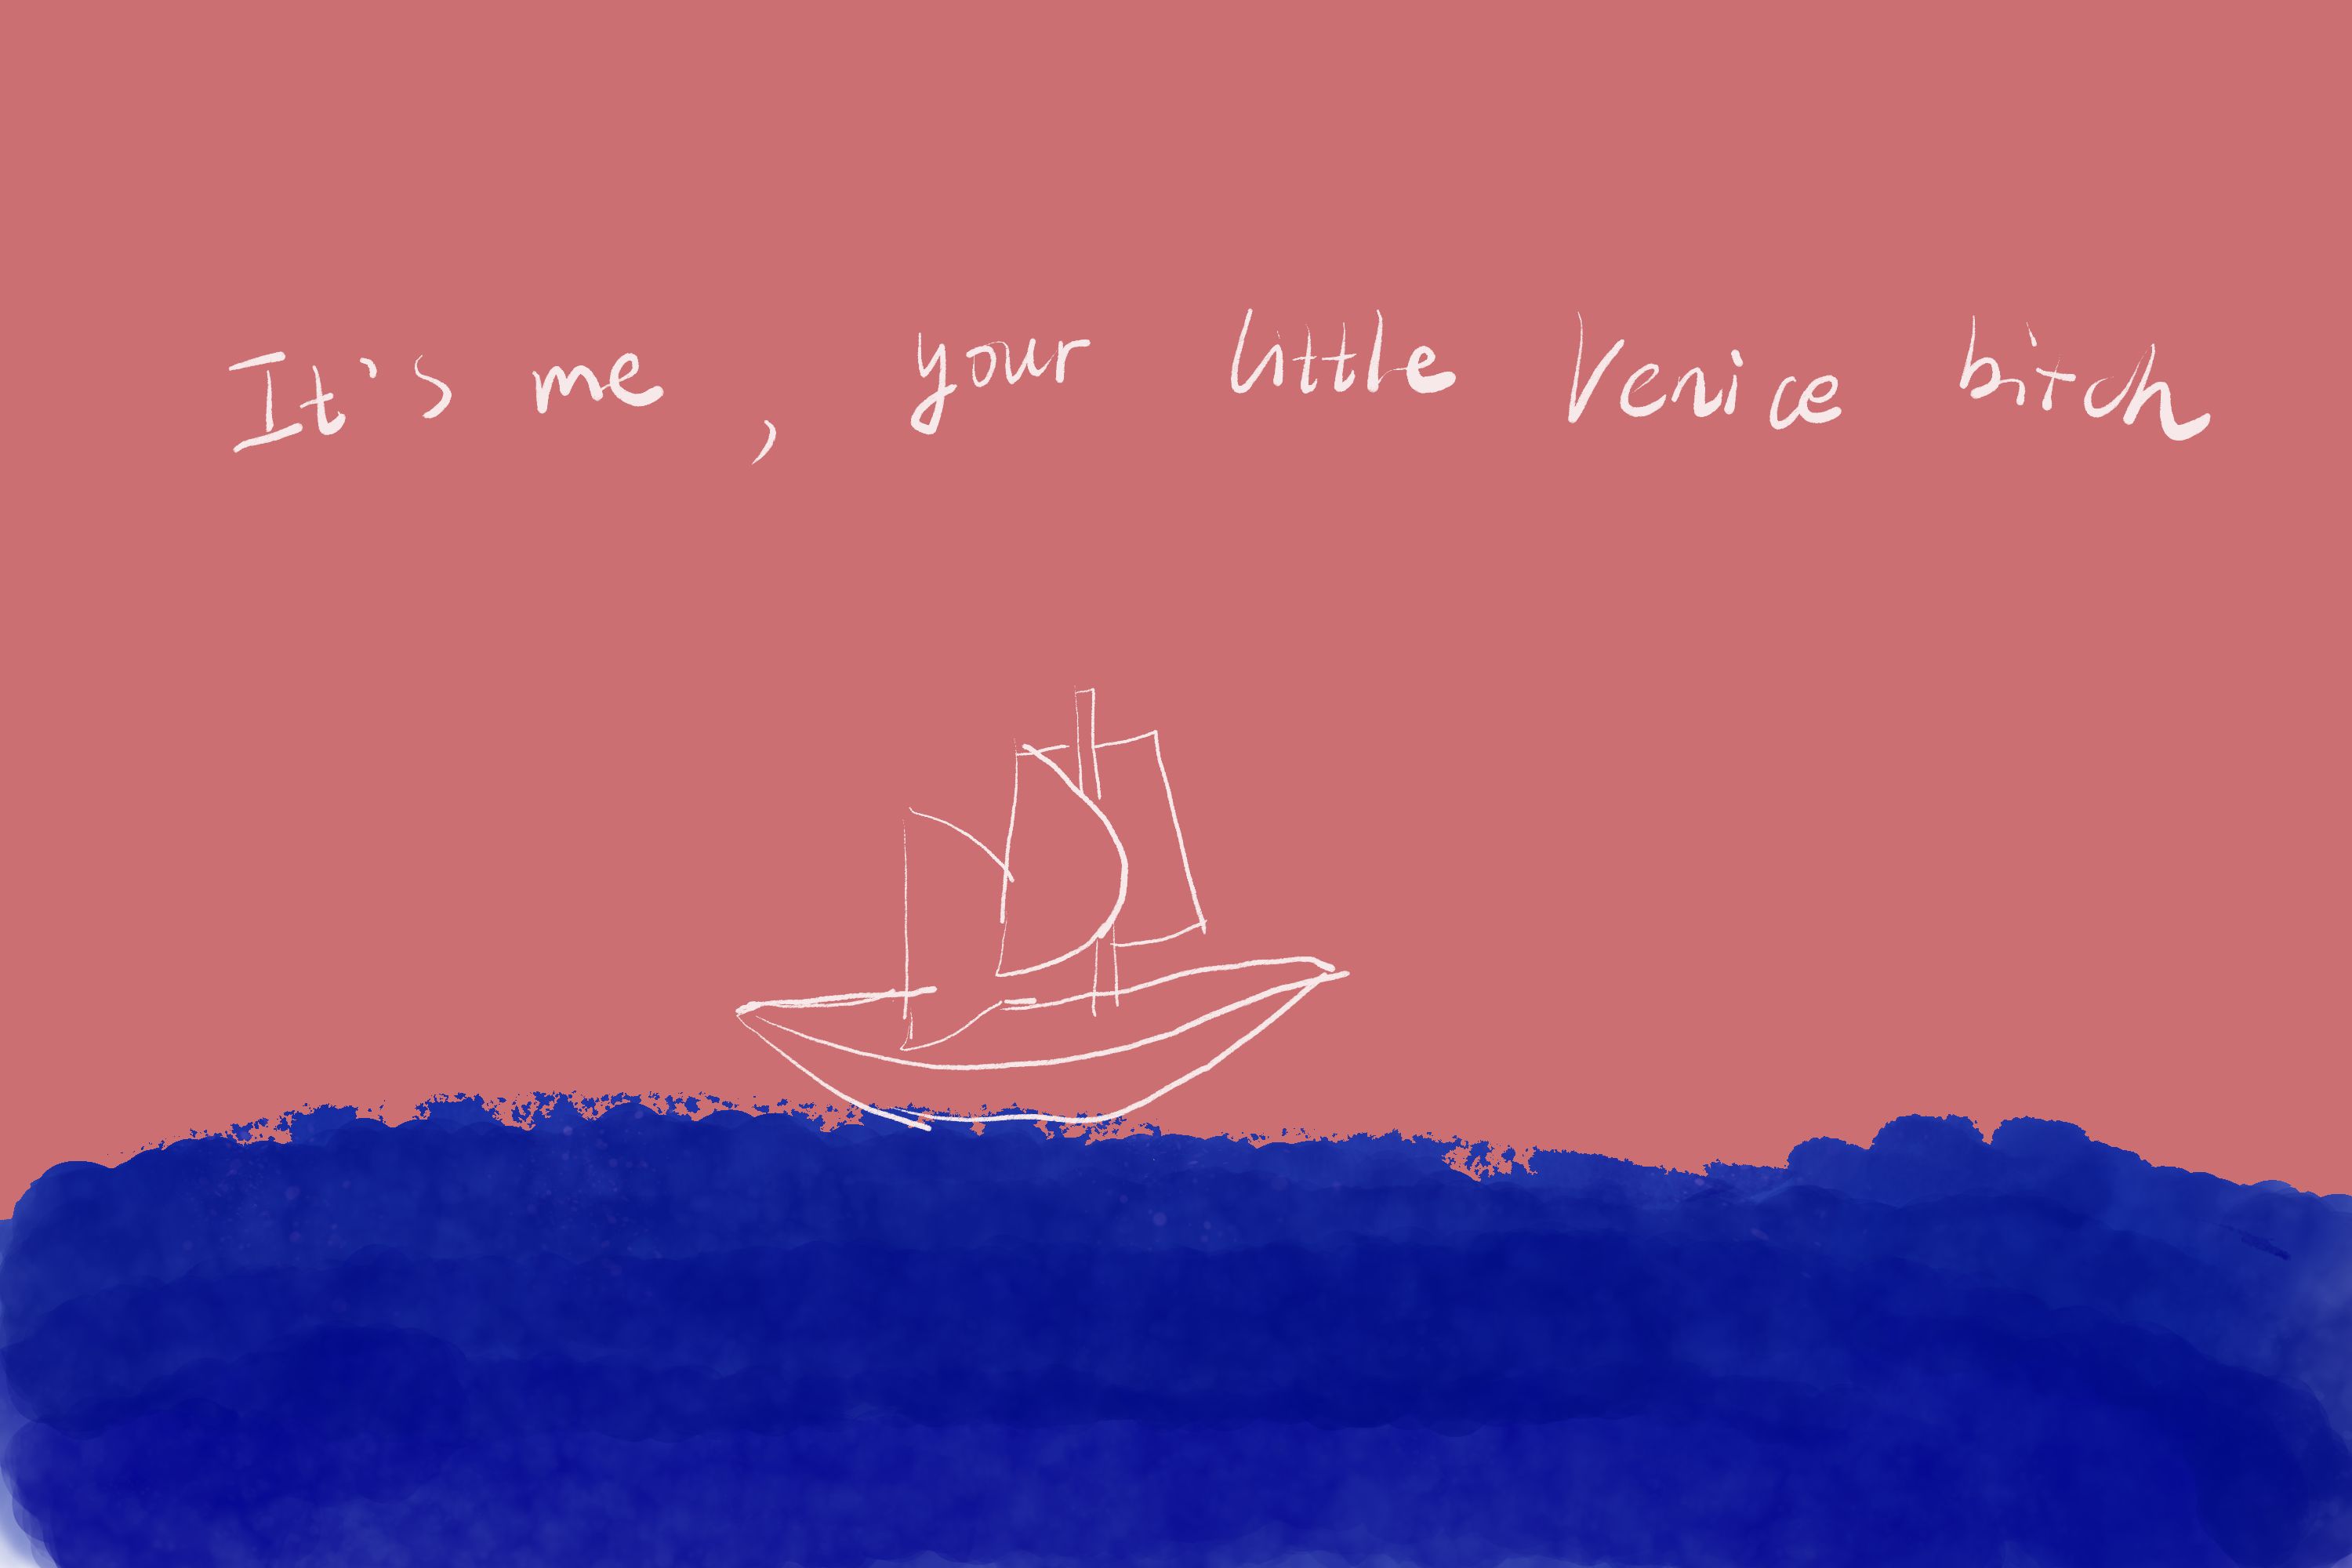 It's me, your little Venice bitch